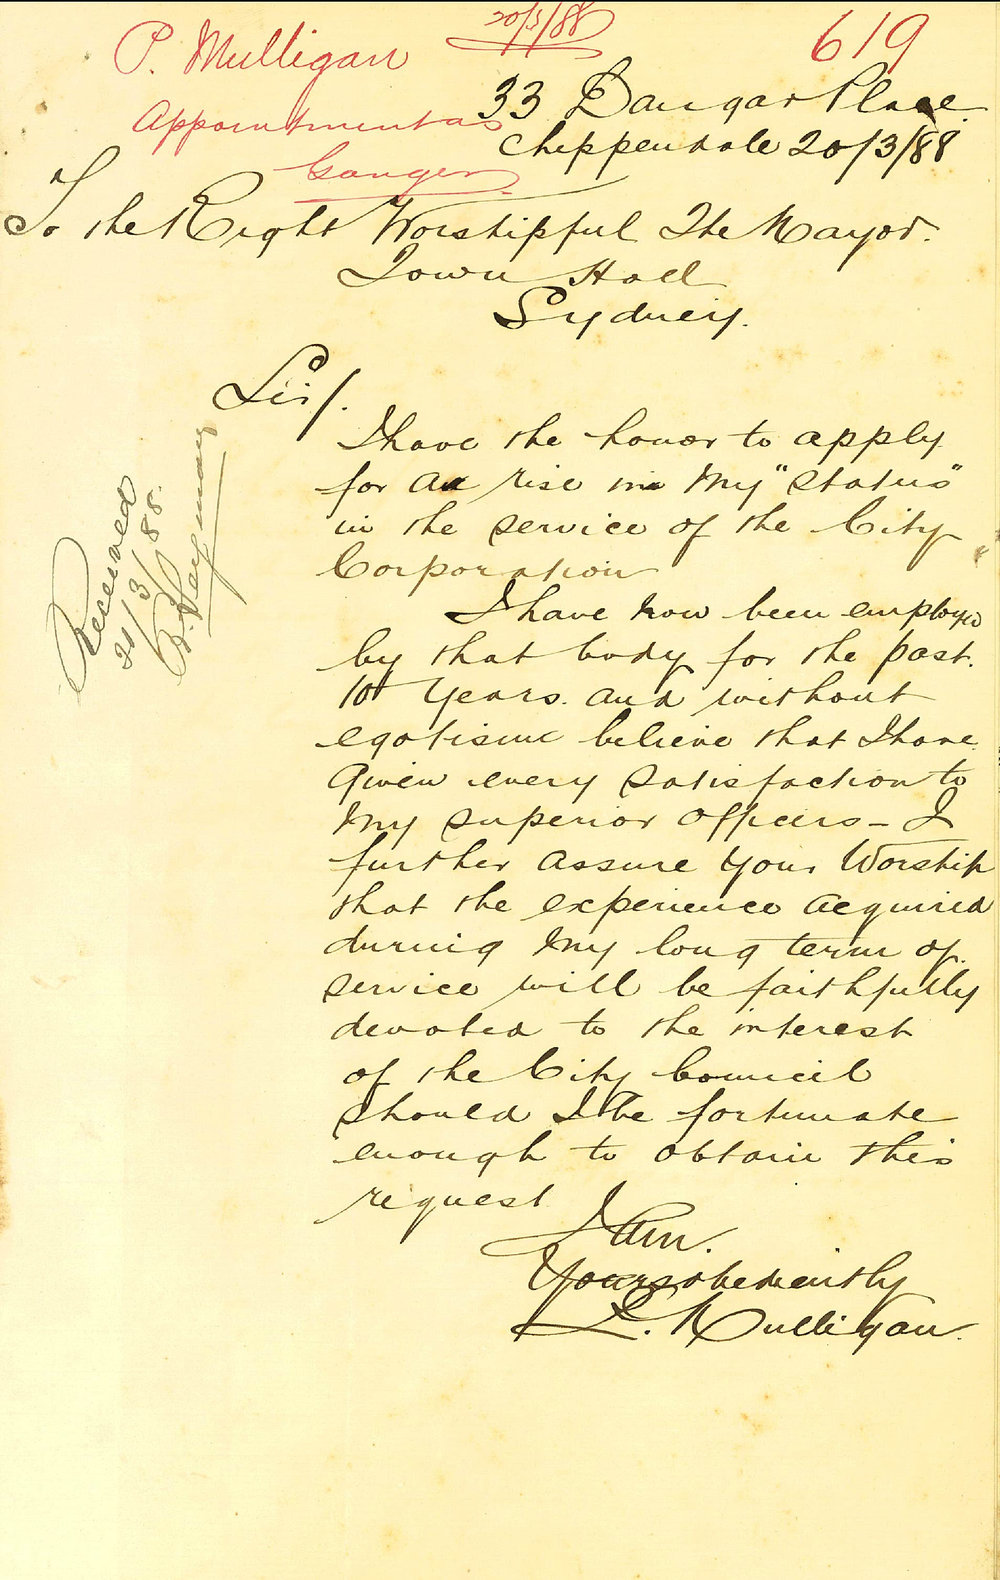 20/3/88
619
P. Mulligan
Appointment as
Ganger
33 Dangar Place
Chippendale 20/3/88
To the Right Worshipful The Mayor.
Town Hall
Sydney.
Sir/.
I have the honor to apply
for a rise in my "status"
in the service of the City
Corporation
I have now been employed
by that body for the past.
10 Years. and without
egotism believe that I have
given every satisfaction to
my superior officers – I
further assure your Worship
that the experience acquired
during my long term of
service will be faithfully
devoted to the interest
of the City Council
should I be fortunate
enough to obtain this
request
I am.
Yours obediently
P. Mulligan.
Received
21/3/88.